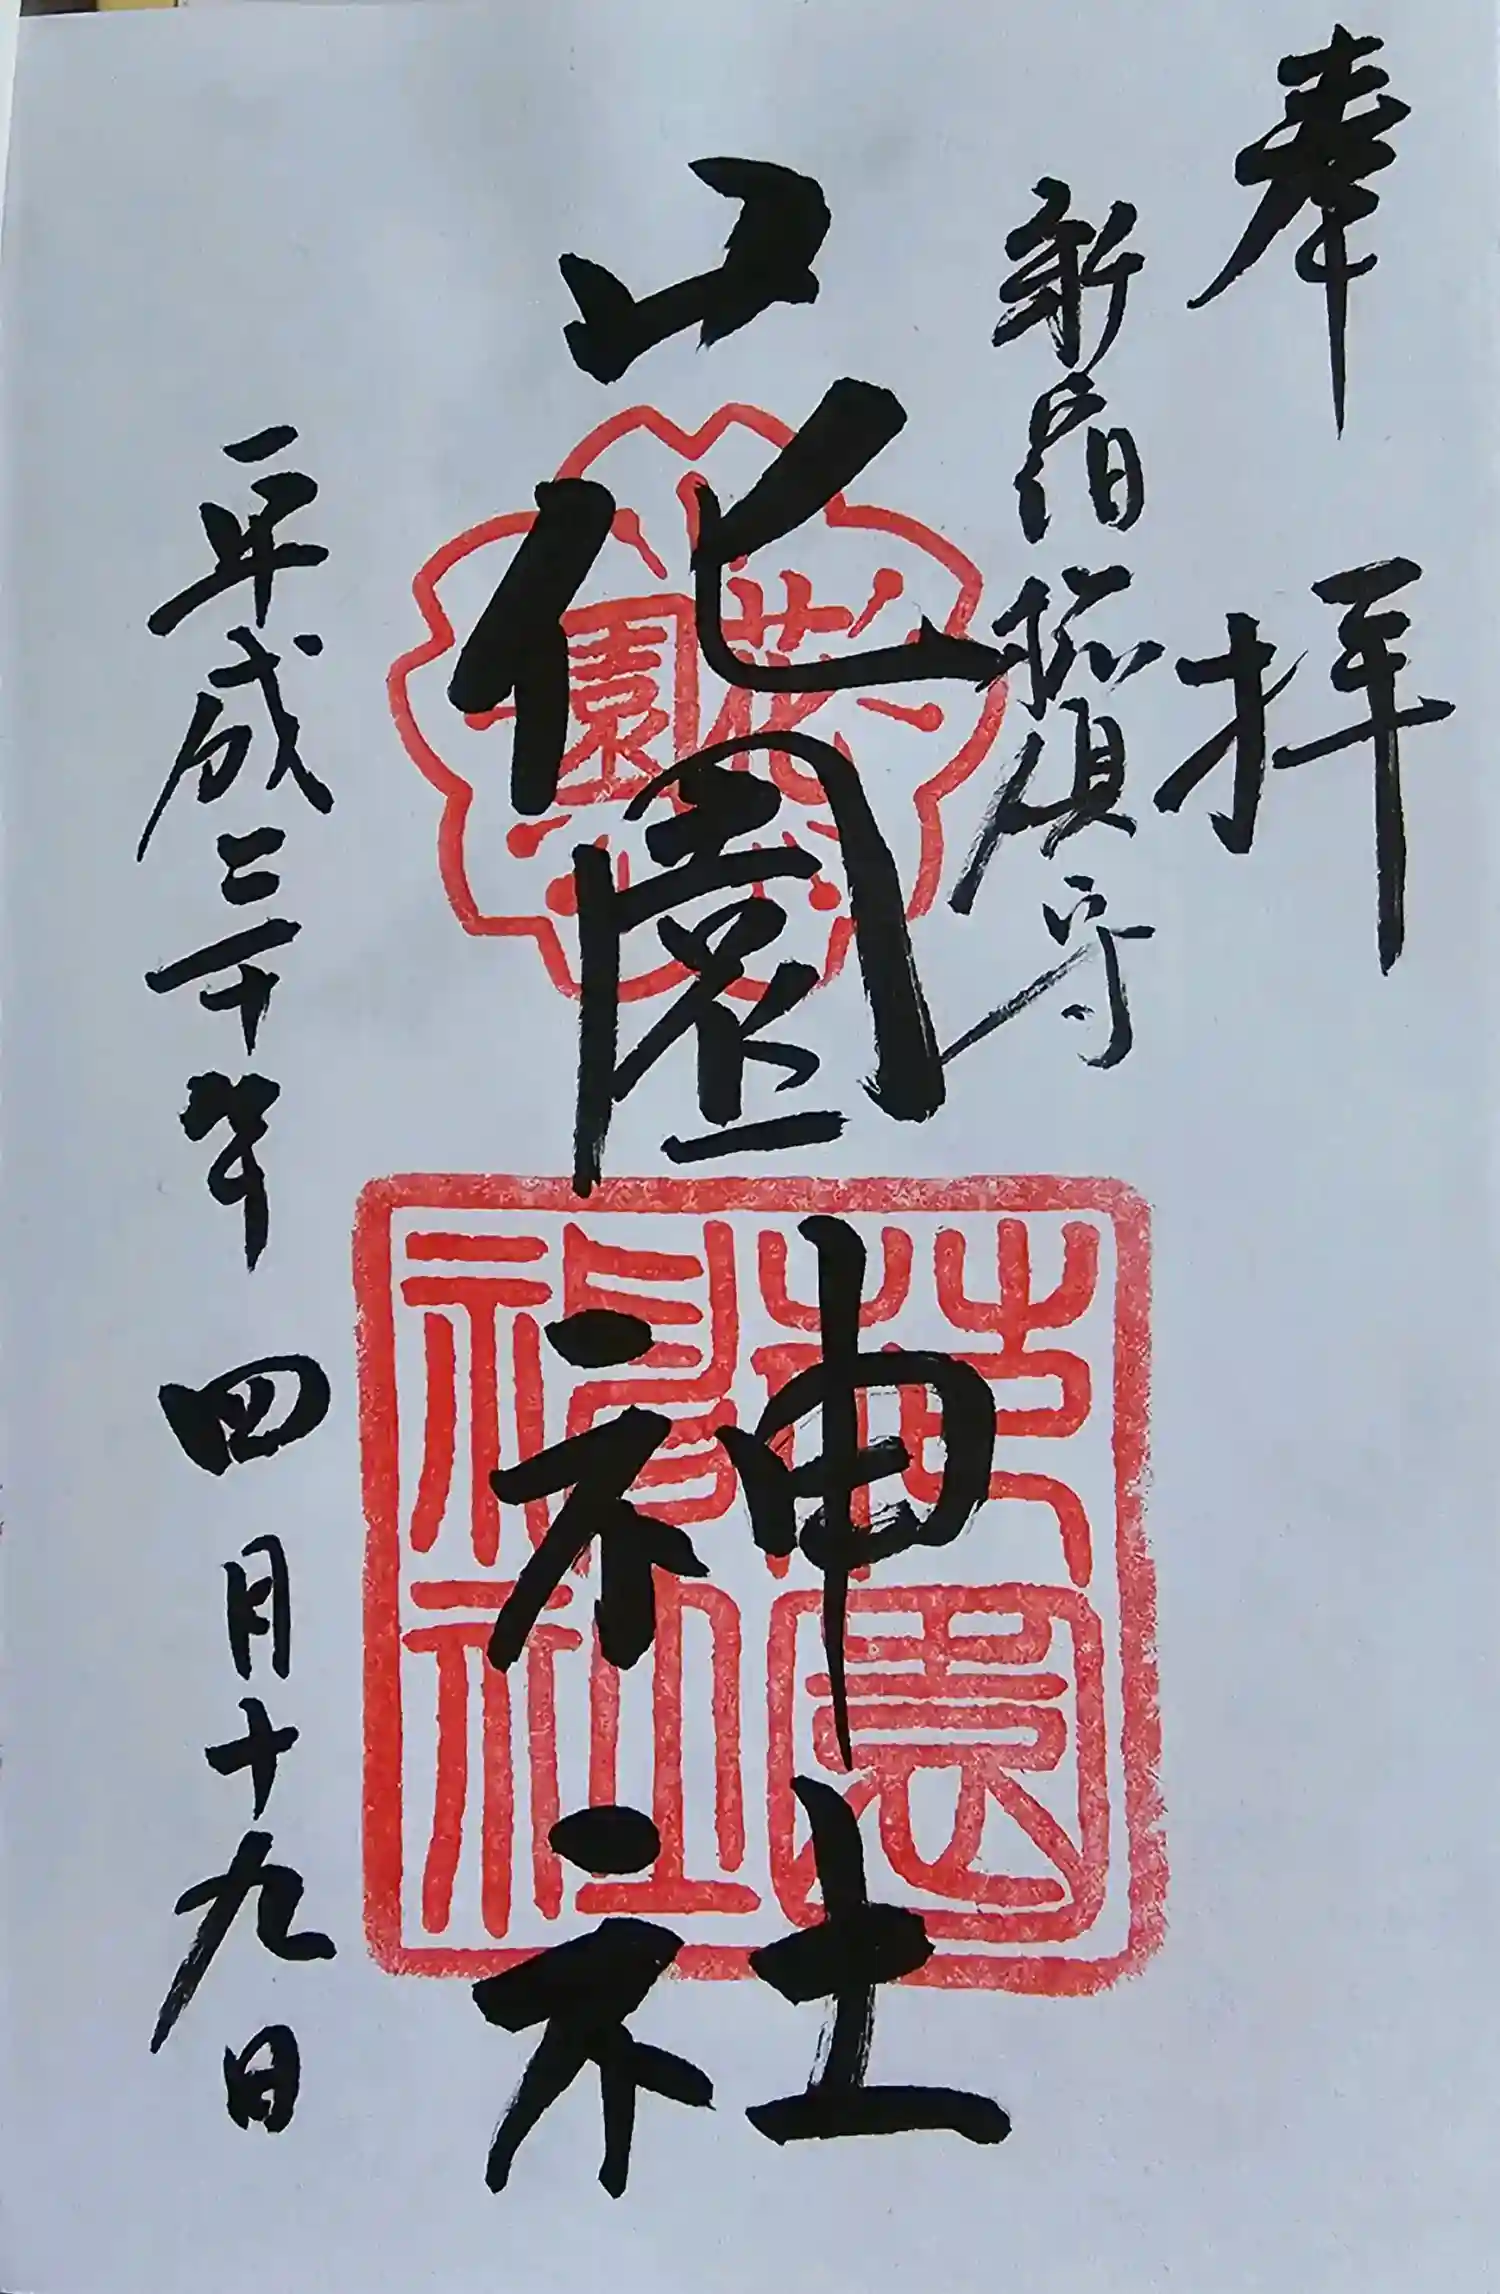 奉拝
新宿総鎮守
花園神社
花園
花園
神社
平成三十年四月十九日